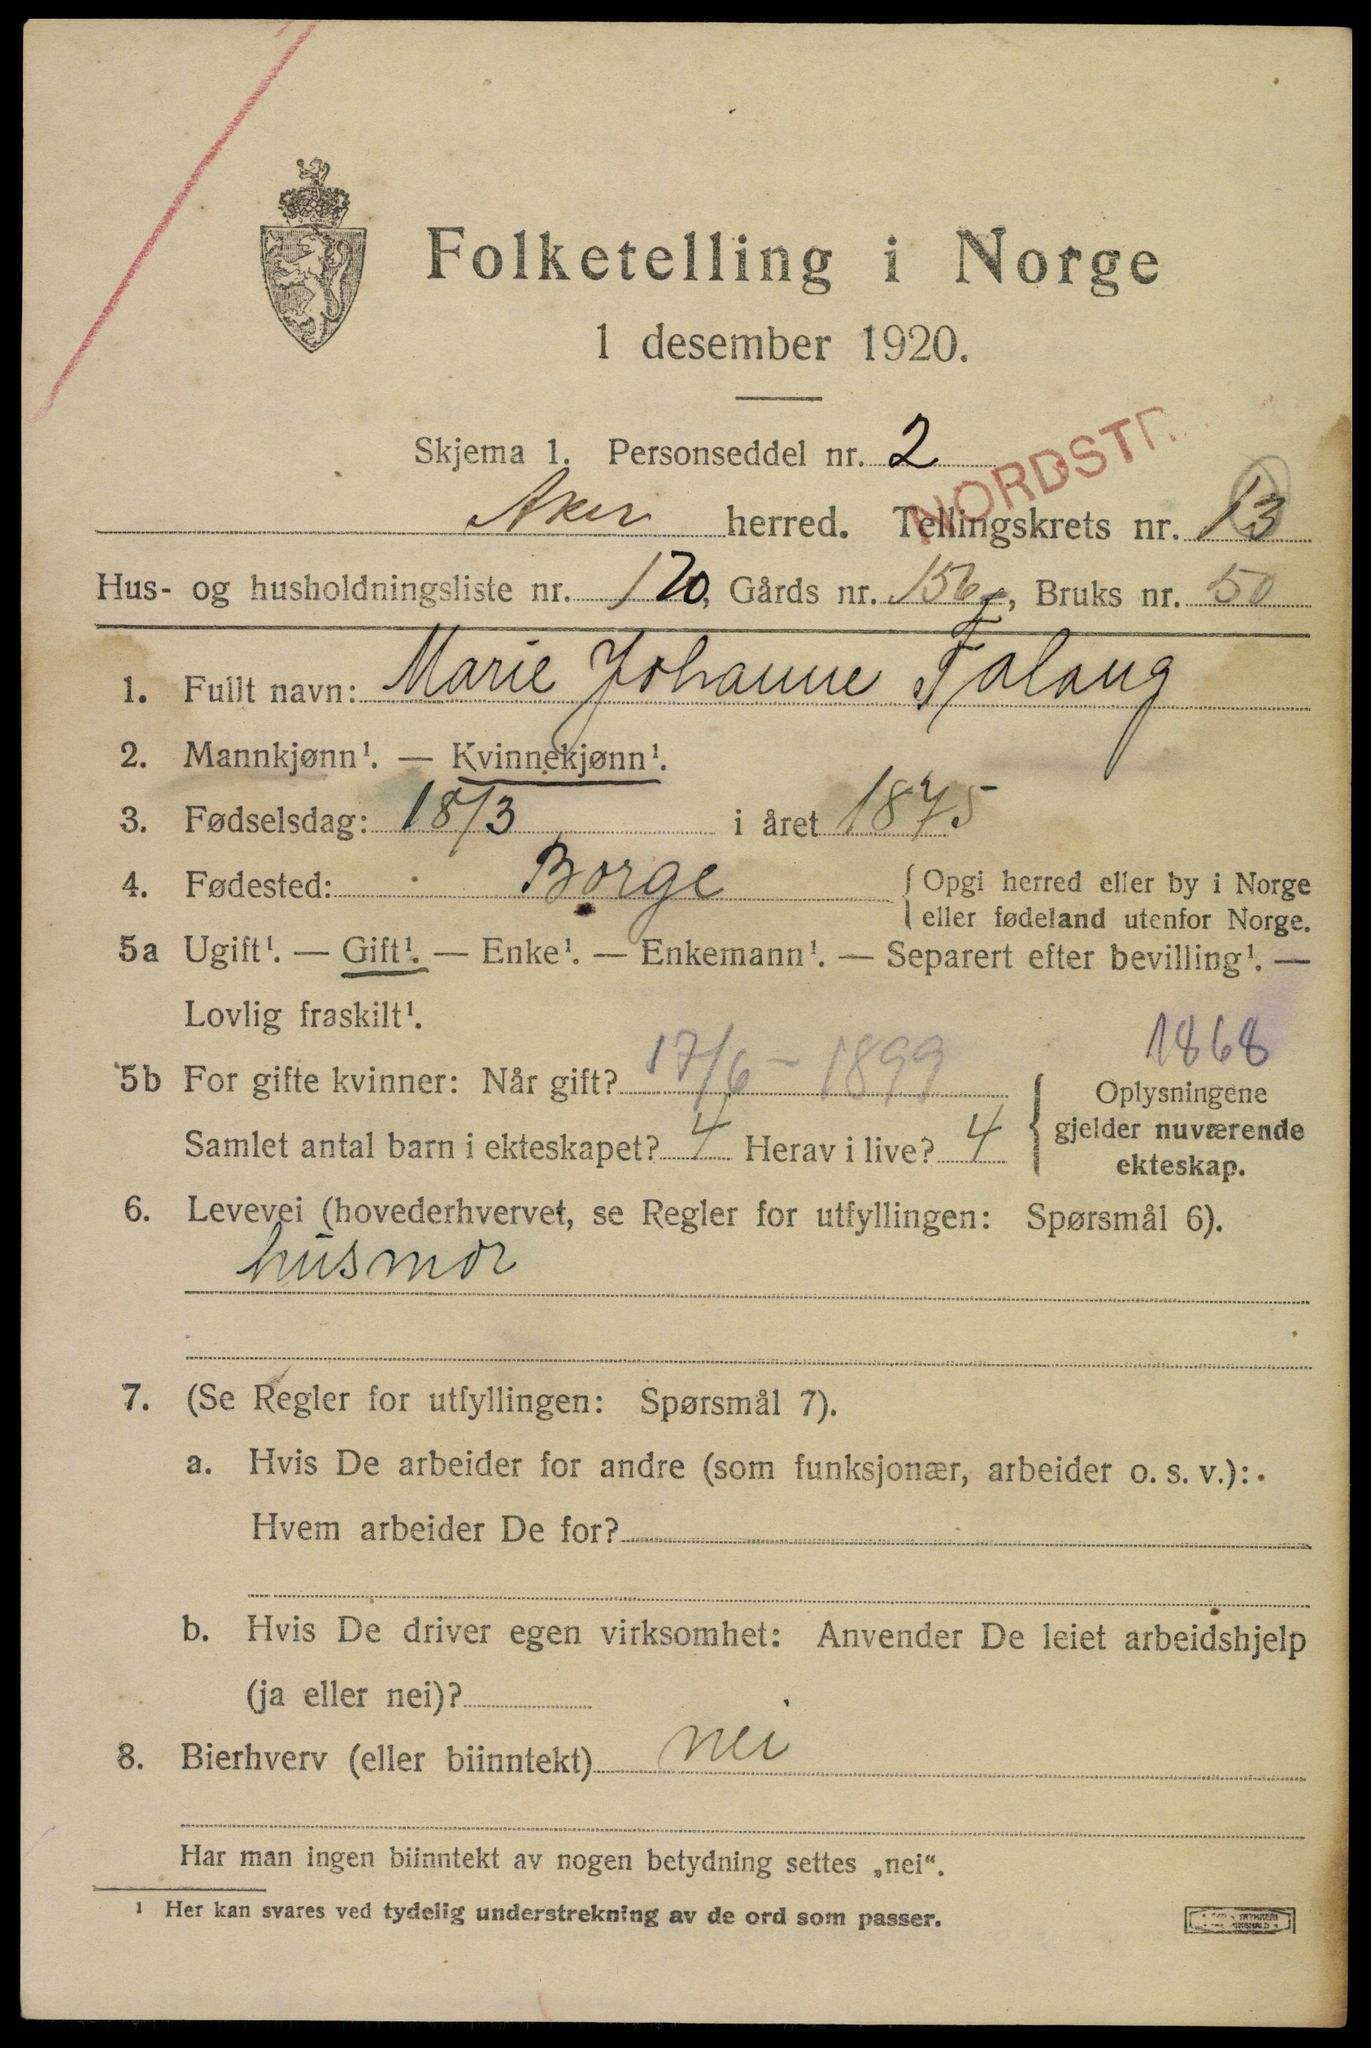 Folketelling i Norge
1 desember 1920.
Skjema 1. Personseddel nr. 2
NORDSTR
Aker herred. Tellingskrets nr. 13
Hus- og husholdningsliste nr. 120, Gårds nr. 156, Bruks nr. 50
1. Fullt navn: Marie Johanne Falang
2. Mannkjønn¹. — Kvinnekjønn¹.
3. Fødselsdag: 18/3 i året 1875
4. Fødested: Borge { Opgi herred eller by i Norge
eller fødeland utenfor Norge.
5a Ugift¹. — Gift¹. — Enke¹. — Enkemann¹. — Separert efter bevilling¹. —
Lovlig fraskilt¹.
1868
5b For gifte kvinner: Når gift? 17/6 - 1899
Samlet antal barn i ekteskapet? 4 Herav i live? 4
{ Oplysningene
gjelder nuværende
ekteskap.
6. Levevei (hovederhvervet, se Regler for utfyllingen: Spørsmål 6).
husmor
7. (Se Regler for utfyllingen: Spørsmål 7).
a. Hvis De arbeider for andre (som funksjonær, arbeider o. s. v.):
Hvem arbeider De for?
b. Hvis De driver egen virksomhet: Anvender De leiet arbeidshjelp
(ja eller nei)?
8. Bierhverv (eller biinntekt) nei
Har man ingen biinntekt av nogen betydning settes „nei“.
¹ Her kan svares ved tydelig understrekning av de ord som passer.